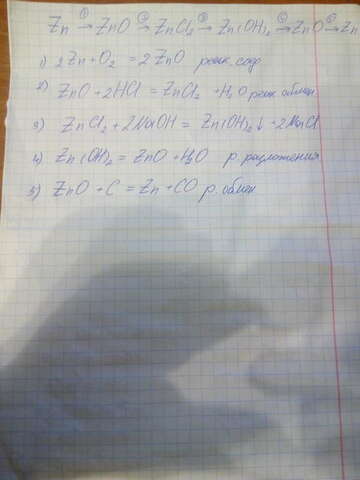 Zn ①→ ZnO ②→ ZnCl₂ ③→ Zn(OH)₂ ④→ ZnO ⑤→ Zn
1) 2Zn + O₂ = 2ZnO реак. соед
2) ZnO + 2HCl = ZnCl₂ + H₂O реак обмен
3) ZnCl₂ + 2NaOH = Zn(OH)₂↓ + 2NaCl
4) Zn(OH)₂ = ZnO + H₂O р. разложения
5) ZnO + C = Zn + CO р. обмен